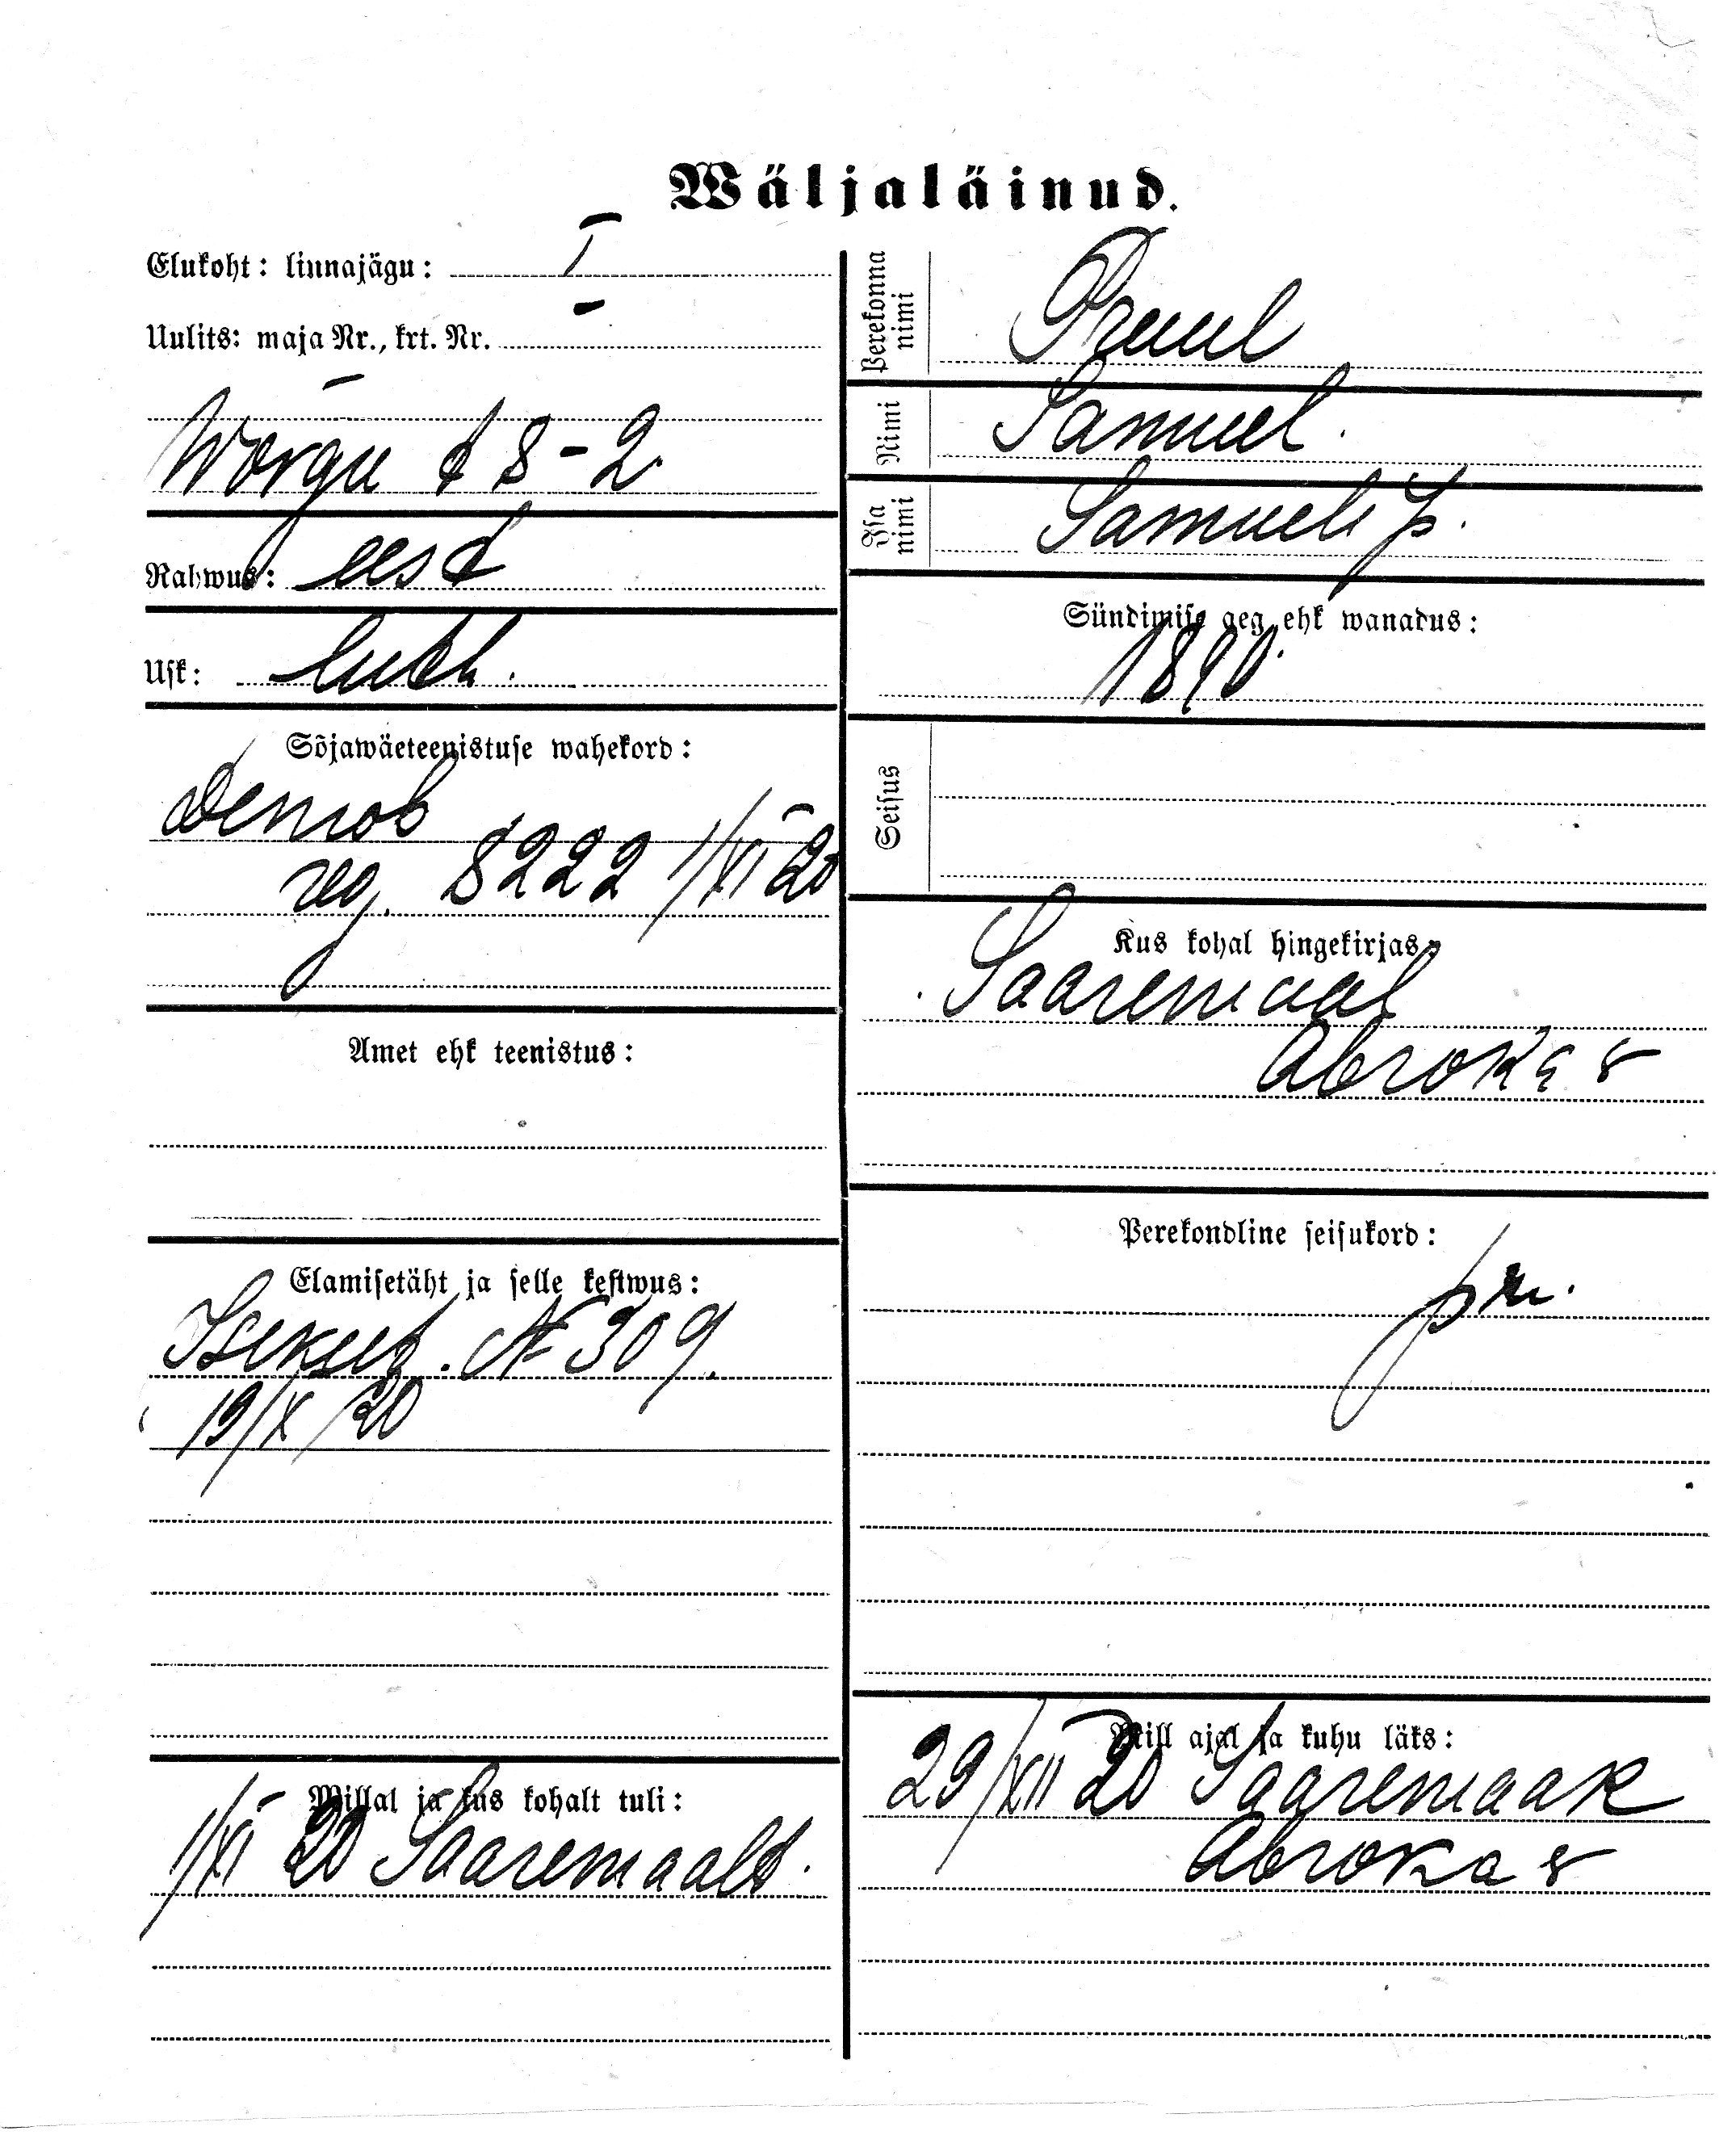 Wäljaläinud.
Elukoht: linnajägu: I
Uulits: maja Nr., krt. Nr.
Wõrgu t 8-2
Rahwus: eest
Usk: luth.
Sõjawäeteenistuse wahekord:
Demob
reg. 8222 1/XI 20
Amet ehk teenistus:
Elamisetäht ja selle kestwus:
Isikut. № 309.
19/X 20
Millal ja kus kohalt tuli:
1/XI 20 Saaremaalt.
Perekonna nimi Preuul
Nimi Samuel.
Isa nimi Samueli p.
Sündimise aeg ehk wanadus:
1890.
Seisus
Kus kohal hingekirjas:
Saaremaal
Abroka
Perekondline seisukord:
Mill ajal ja kuhu läks:
29/XII 20 Saaremaak
Abroka